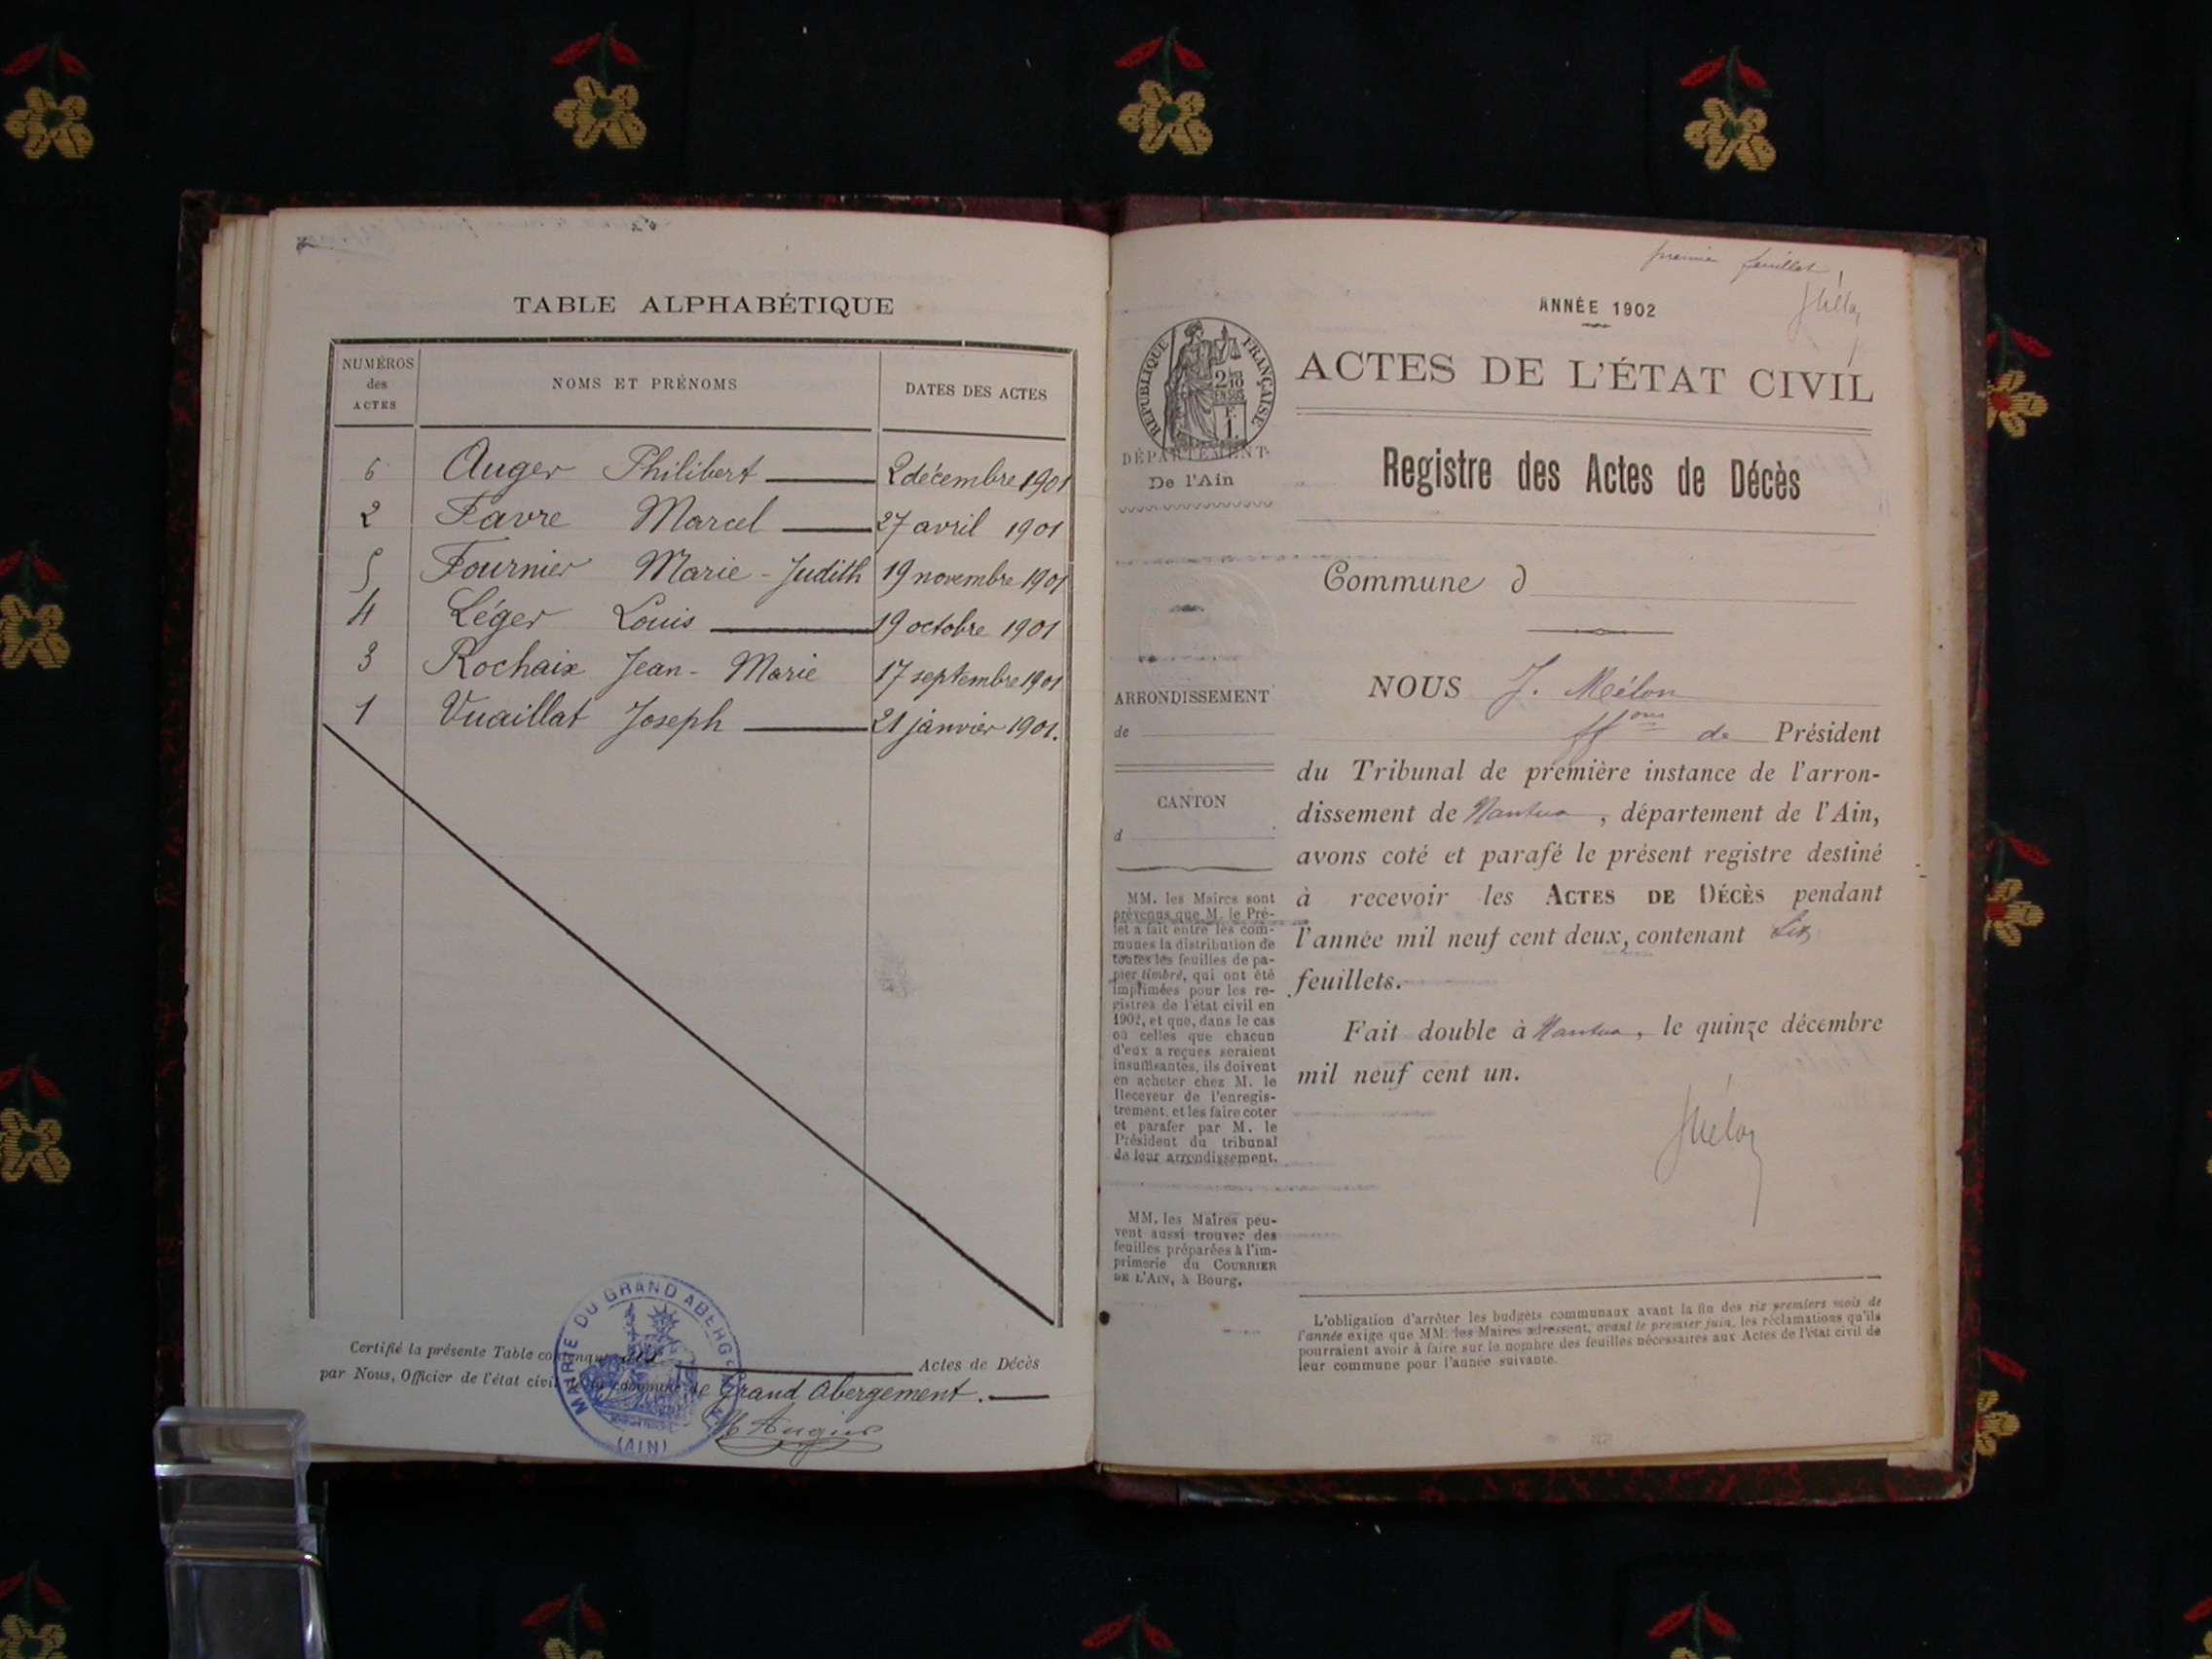 TABLE ALPHABÉTIQUE
NUMÉROS
des
ACTES
NOMS ET PRÉNOMS
DATES DES ACTES
6 Auger Philibert 2 décembre 1901
2 Favre Marcel 27 avril 1901
5 Fournier Marie-Judith 19 novembre 1901
4 Léger Louis 19 octobre 1901
3 Rochaix Jean-Marie 17 septembre 1901
1 Vuaillat Joseph 21 janvier 1901.
Certifié la présente Table contenant Actes de Décès
par Nous, Officier de l'état civil de la commune de Grand Abergement.
MAIRIE DU GRAND ABERG
(AIN)
premier feuillet
ANNÉE 1902
ACTES DE L'ÉTAT CIVIL
RÉPUBLIQUE FRANÇAISE
2/10
EN SUS
F.
1.
DÉPARTEMENT
De l'Ain
Registre des Actes de Décès
Commune d
ARRONDISSEMENT
de
CANTON
d
MM. les Maires sont
prévenus que M. le Pré-
fet a fait entre les com-
munes la distribution de
toutes les feuilles de pa-
pier timbré, qui ont été
imprimées pour les re-
gistres de l'état civil en
1902, et que, dans le cas
où celles que chacun
d'eux a reçues seraient
insuffisantes, ils doivent
en acheter chez M. le
Receveur de l'enregis-
trement, et les faire coter
et parafer par M. le
Président du tribunal
de leur arrondissement.
MM. les Maires peu-
vent aussi trouver des
feuilles préparées à l'im-
primerie du COURRIER
DE L'AIN, à Bourg.
NOUS J. Mélon
ff ons de Président
du Tribunal de première instance de l'arron-
dissement de Nantua, département de l'Ain,
avons coté et parafé le présent registre destiné
à recevoir les ACTES DE DÉCÈS pendant
l'année mil neuf cent deux, contenant
feuillets.
Fait double à Nantua, le quinze décembre
mil neuf cent un.
L'obligation d'arrêter les budgets communaux avant la fin des six premiers mois de
l'année exige que MM. les Maires adressent, avant le premier juin, les réclamations qu'ils
pourraient avoir à faire sur le nombre des feuilles nécessaires aux Actes de l'état civil de
leur commune pour l'année suivante.